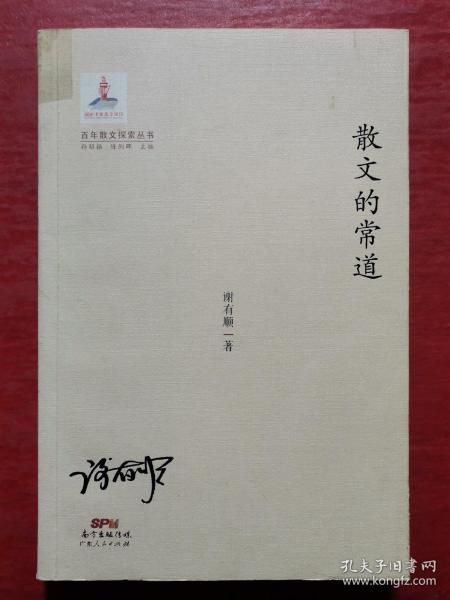 国家出版基金项目
百年散文探索丛书
陈剑晖 主编
散文的常道
谢有顺 著
谢有顺
SPM
南方出版传媒
广东人民出版社
孔夫子旧书网
www.kongfz.com